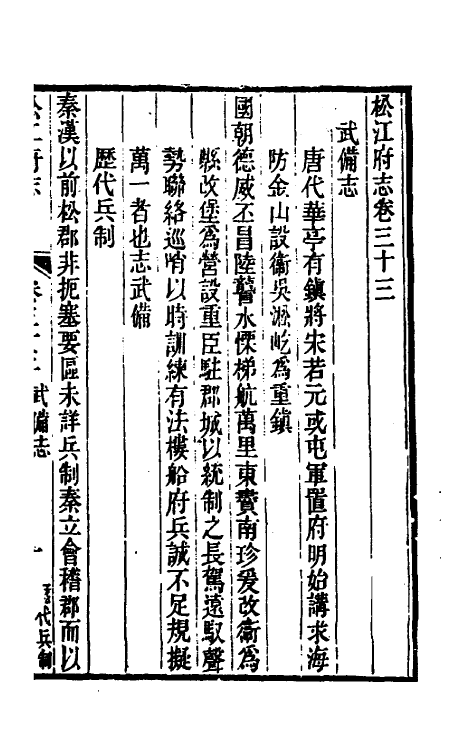 松江府志卷三十三
武備志
唐代華亭有鎮將宋若元或屯軍置府明始講求海
防金山設衞吳淞屹爲重鎮
國朝德威丕昌陸讋水慄梯航萬里東賮南珍爰改衞爲
縣改堡爲營設重臣駐郡城以統制之長駕遠馭聲
勢聯絡巡哨以時訓練有法樓船府兵誠不足規擬
萬一者也志武備
歷代兵制
秦漢以前松郡非扼塞要區未詳兵制秦立會稽郡而以
松江府志
武備志
一
代兵制